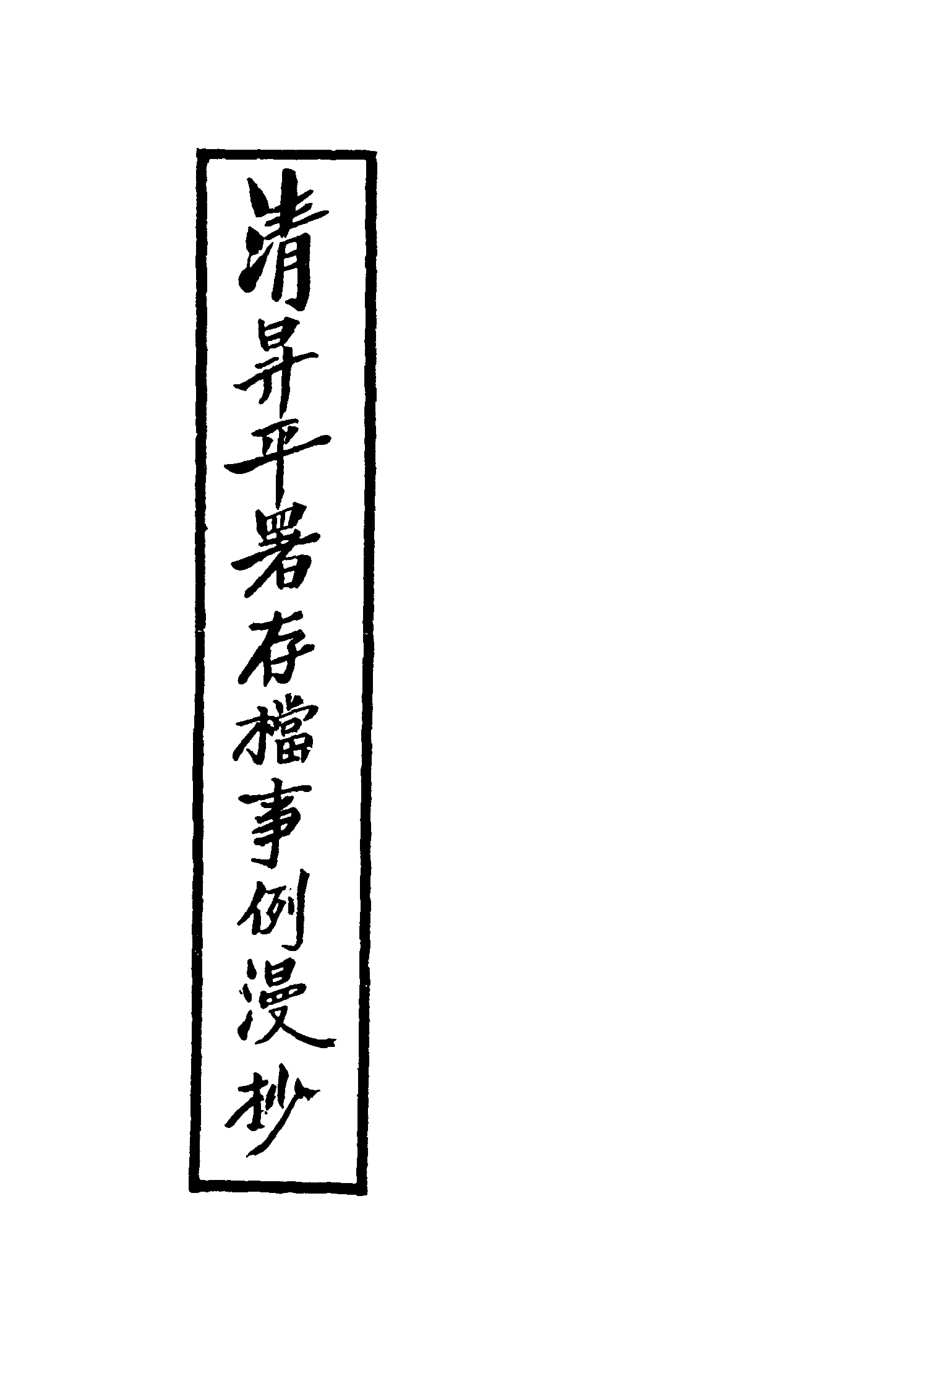 清昇平署存檔事例漫抄